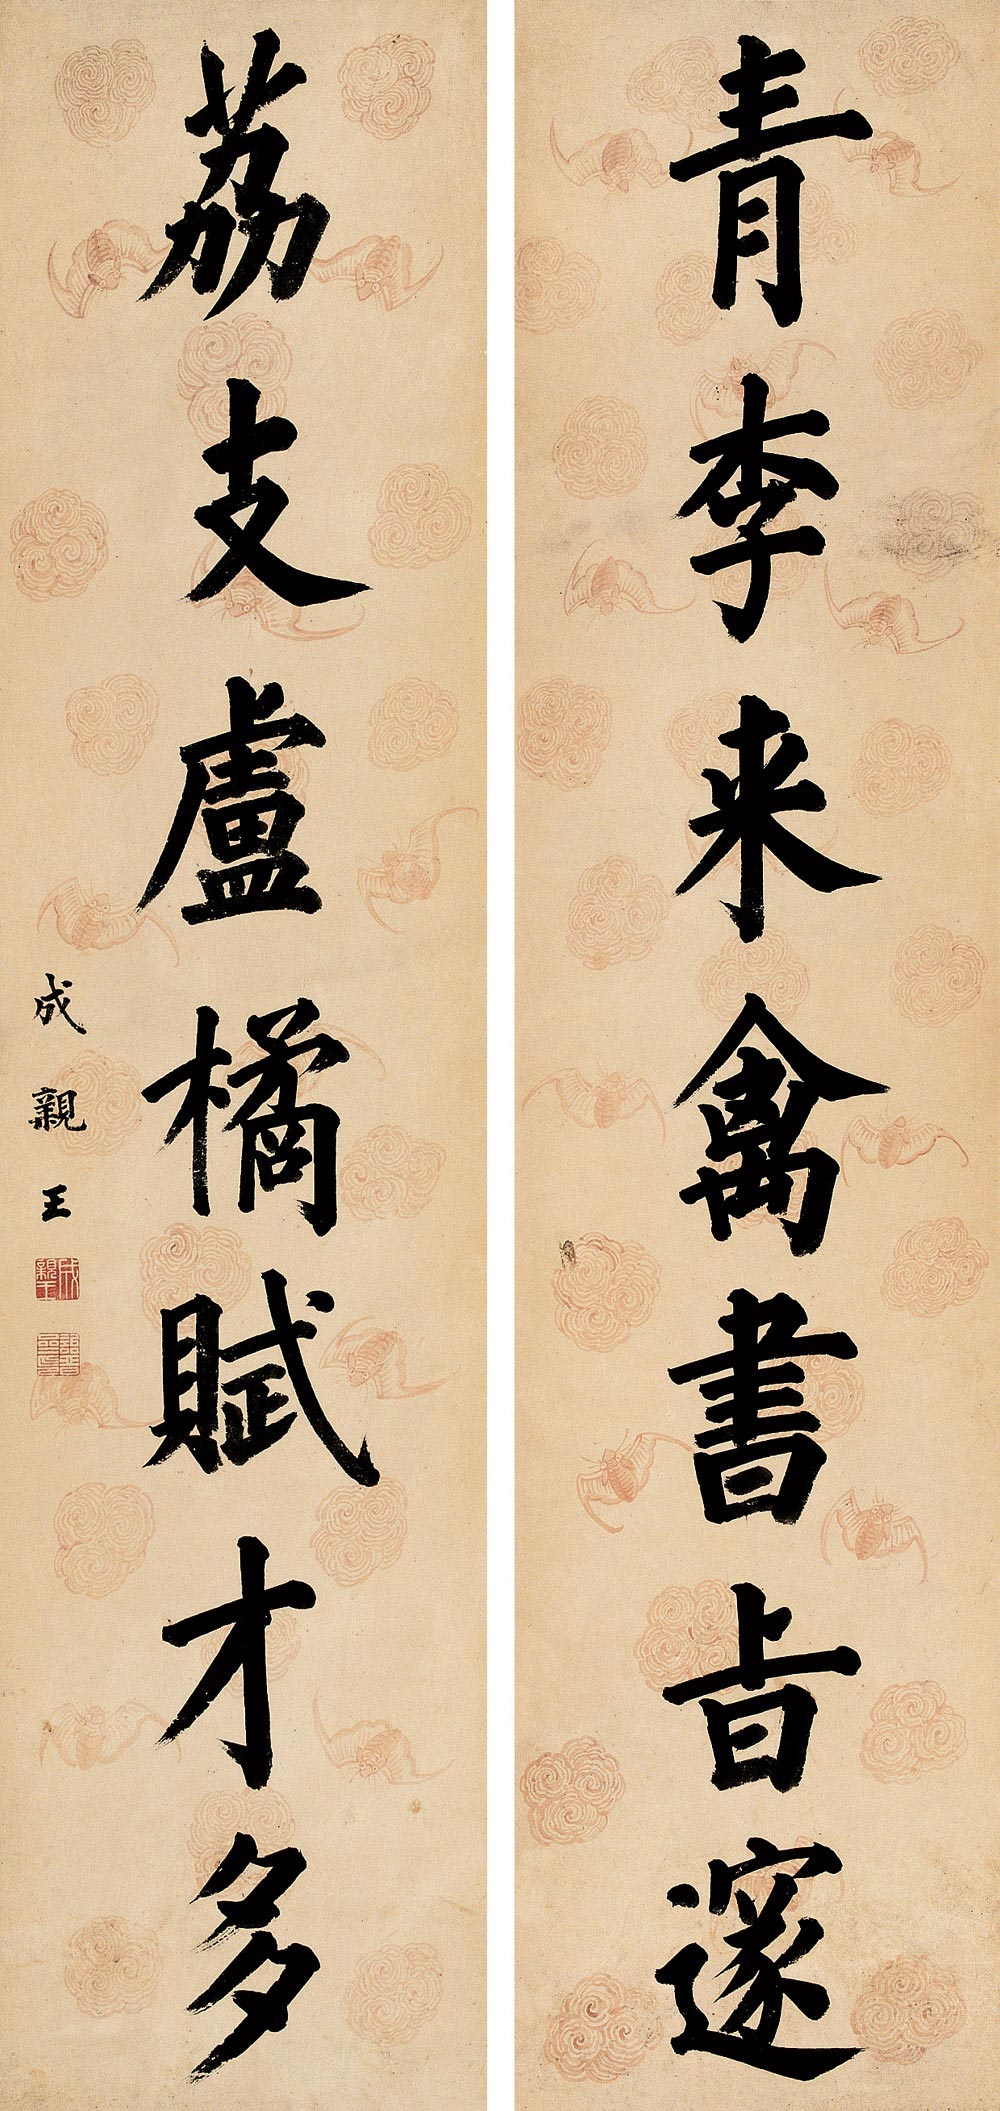 青李来禽書旨邃
荔支盧橘賦才多
成親王
成親王